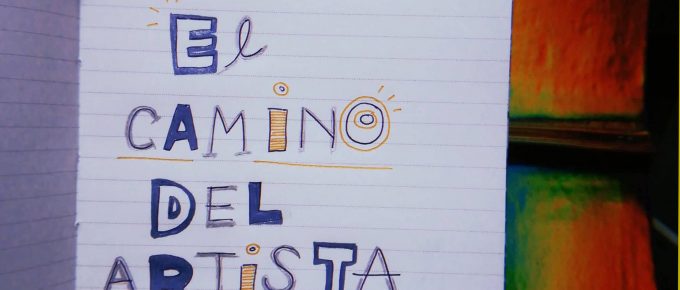 El
CAMiNO
DEL
ARTiSTA